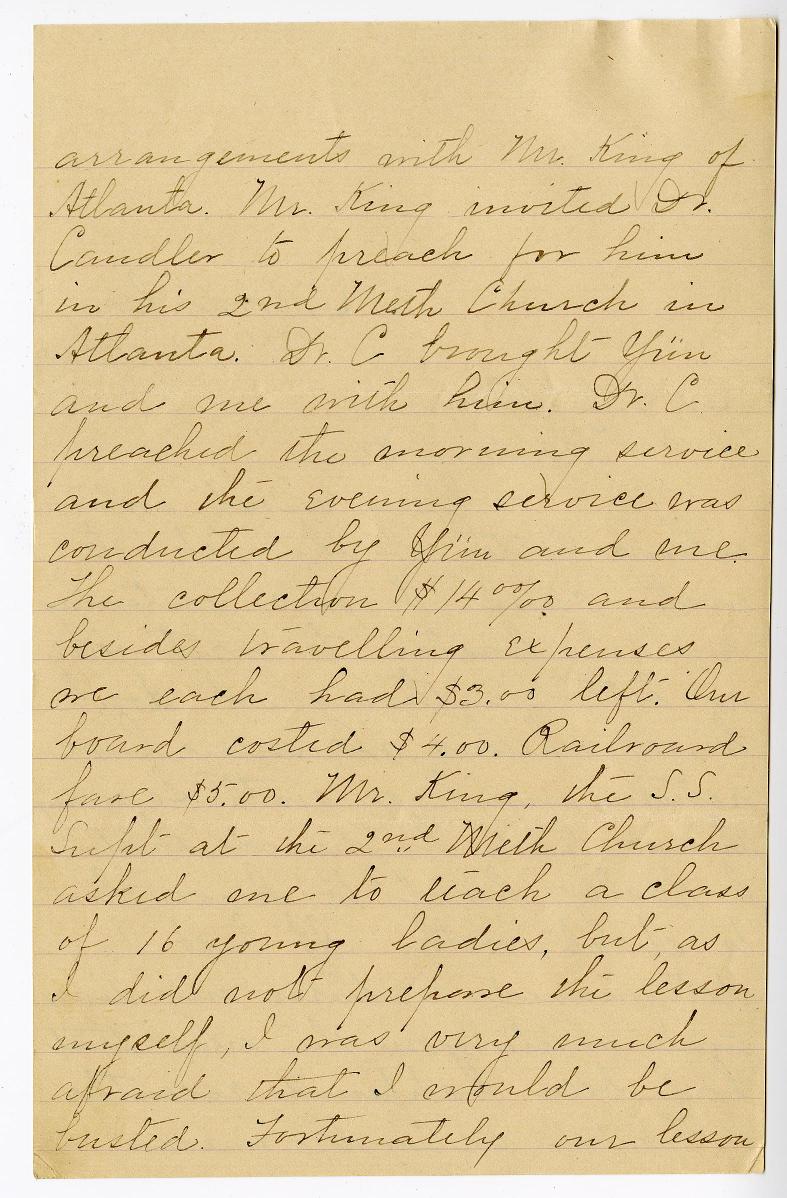 arrangements with Mr. King of
Atlanta. Mr. King invited Dr.
Candler to preach for him
in his 2nd Meth Church in
Atlanta. Dr. C brought Yün
and me with him. Dr. C
preached the morning service
and the evening service was
conducted by Yün and me.
The collection $14 00/00 and
besides travelling expenses
we each had $3.00 left. Our
board costed $4.00. Railroard
fare $5.00. Mr. King, the S.S.
Supt at the 2nd Meth Church
asked me to teach a class
of 16 young ladies, but, as
I did not prepare the lesson
myself, I was very much
afraid that I would be
busted. Fortunately our lesson